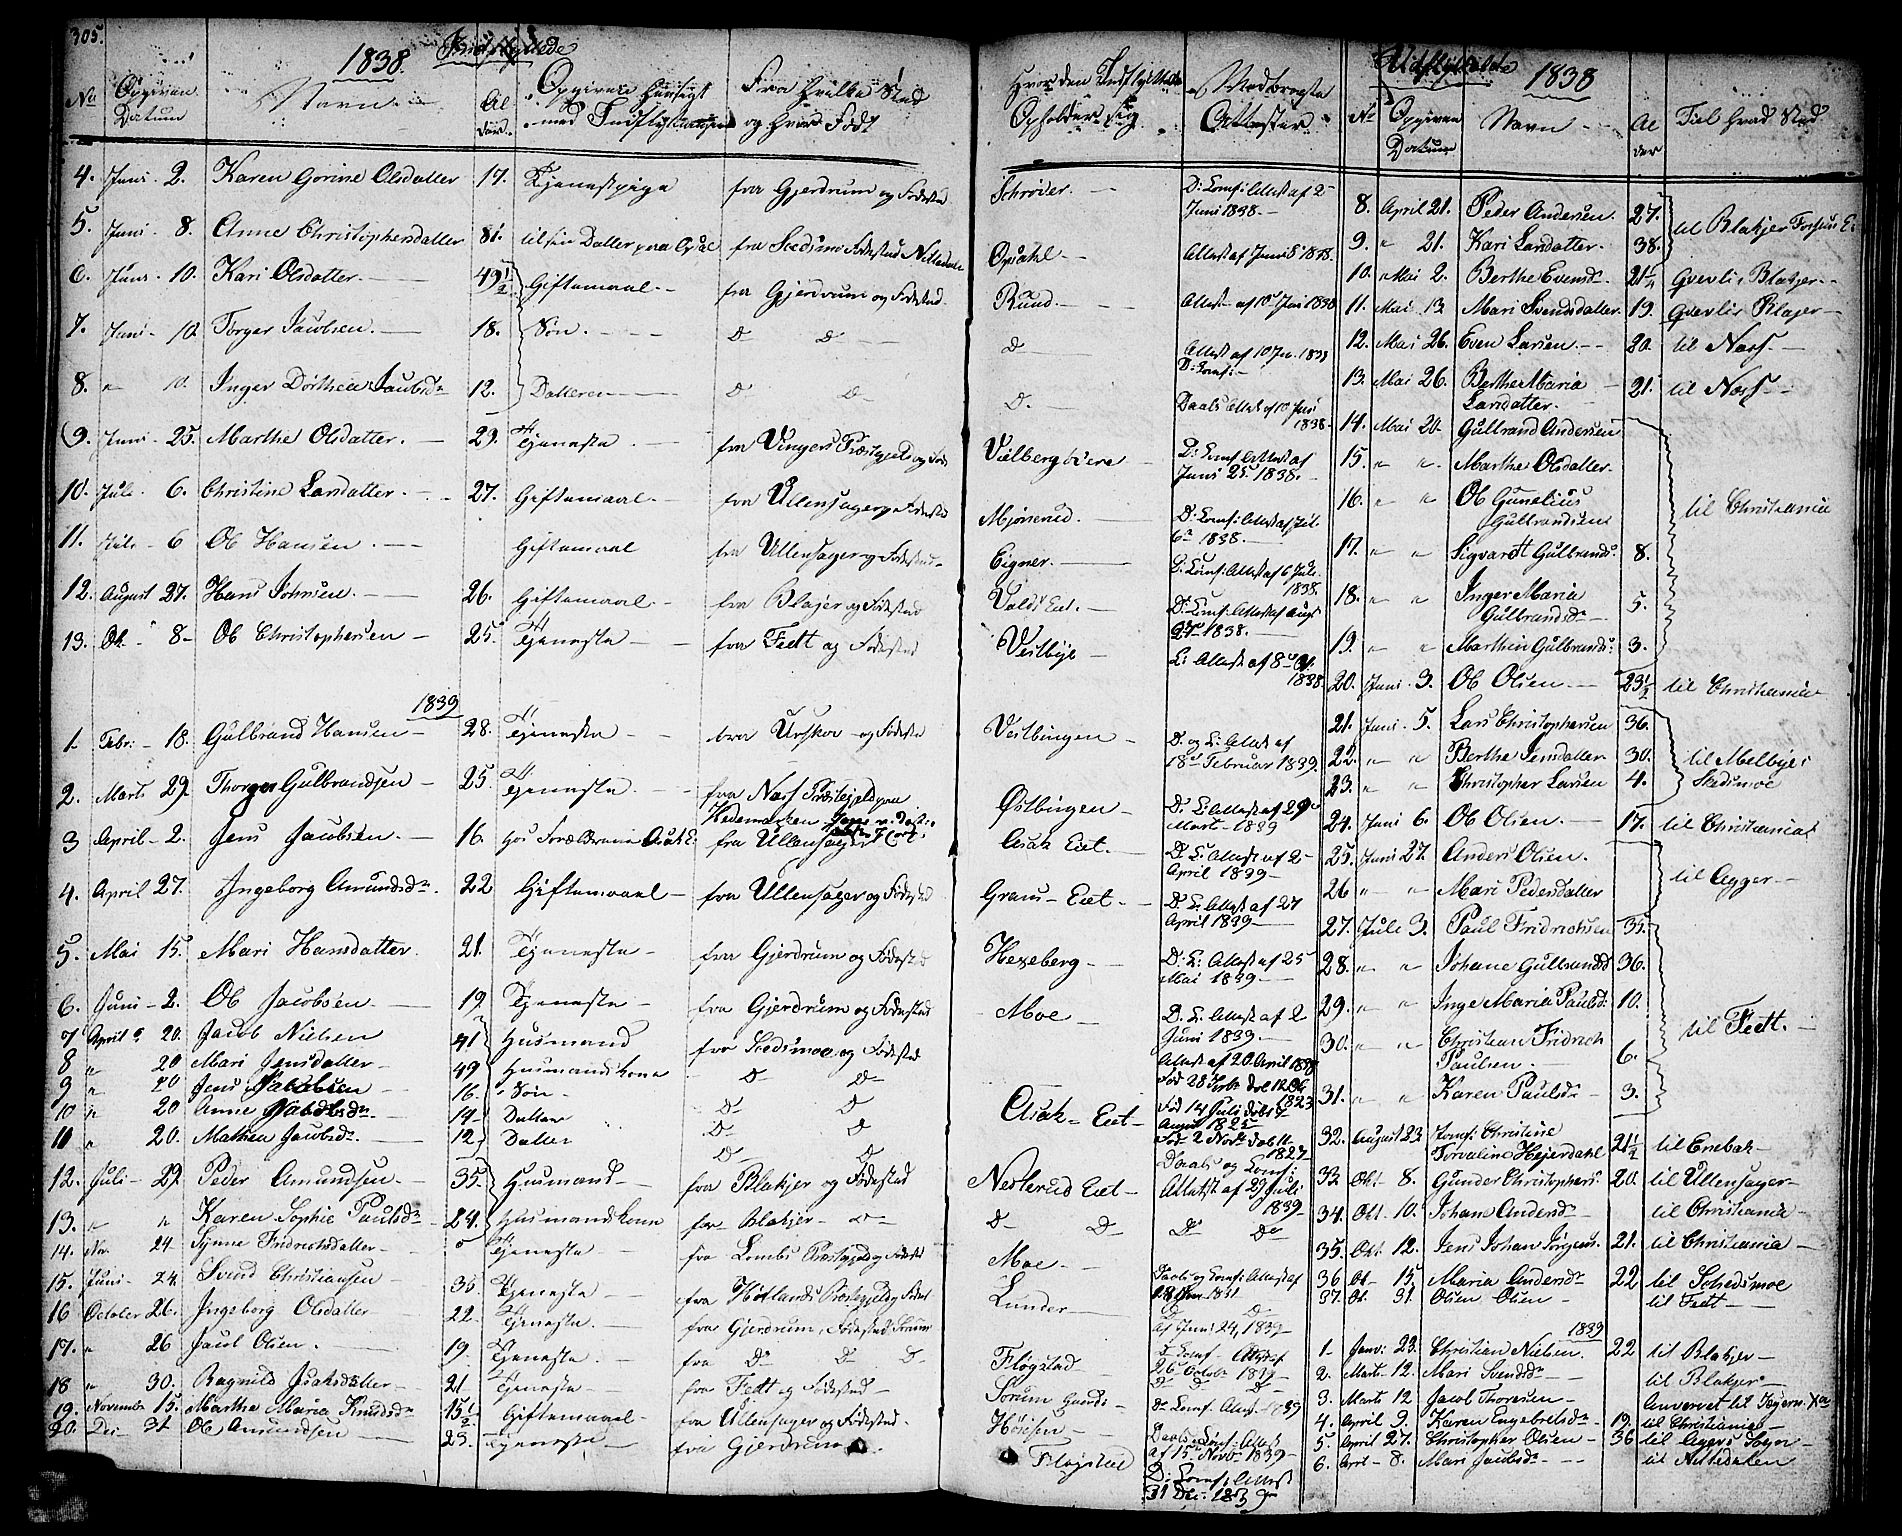 305.
1838. Indflyttede
No Opgiven Datum Navn Alder. Opgivne Hensigt med Indflytningen Fra hvilke Sted og hvor Født
Hvor den Indflyttede Opholder sig Medbragte Attester.
4. Juni 2. Karen Gorine Olsdatter 17. Tjenestpige fra Gjerdrum og Fødested Schrøder. D: Conf: Attest af 2 Juni 1838.
5. Juni 8. Anne Christophersdatter 81. til sin Datter paa Opsal fra Skedsmo Fødested Nittedal Opsahl Attest af Juni 8 1838.
6. Juni 10. Kari Olsdatter 49½ Giftemaal fra Gjerdrum og Fødested Ruud Attest af 10 Juni 1838
7. Juni 10. Torger Jacobsen 18. Søn D D D Attest af 10 Jun. 1838 D: Conf:
8. " 10. Inger Dorthea Jacobsdr 12. Datteren D D D. Daabs Attest af 10 Juni 1838.
9. Juni 25. Marthe Olsdatter. 23. Tjeneste fra Vingers Præstegjeld og Føde D. Conf Attest af Juni 25 1838.
10. Jule 6. Christine Larsdatter. 27. Giftemaal fra Ullensager og Fødested Mjønerud. D: Conf: Attest af Jul. 6 1838.
11. Jule 6 Ole Hansen Giftemaal fra Ullensager og Fødested Eigner. D: Conf: Attest af 6 Jule. 1838.
12. August 27. Hans Johnsen 26. Giftemaal fra Blakjer og Fødested Valds Eet. D: Conf: Attest af August 27 1838.
13. Ok. 8 Ole Christophersen 25. Tjeneste fra Fedt og Fødested Vestbye Attest af 8 1838.
1839
1 Febr: 18. Gulbrand Hansen 28. Tjeneste fra Urskov og Fødested Vestbingen D. og C. Attest af 18 Februar 1839.
2. Marts 29. Thorger Gulbrandsen 25. Tjeneste fra Næss Præstegjeld paa Hedemarken Østbingen D. C. Attest af 29 Marts 1839
3 April 2. Jens Jacobsen. 16. fra Ullensager Asak Eet. D. C. Attest af 2 April 1839
4. April 27. Ingeborg Amundsdr. 22 Giftemaal fra Ullensager og Fødested Eet. D. C. Attest af 27 April 1839
5. Mai 15. Mari Hansdatter. 21. Tjeneste fra Gjerdrum og Fødested Hexeberg D. C. Attest af 25 Mai 1839
6. Juni 2. Ole Jacobsen 19. Tjeneste fra Gjerdrum og Fødested Moe D. C. Attest af 2 Juni 1839
7 April 20. Jacob Nielsen 41 Husmand fra Skedsmoe og Fødested Asak Eet Attest af 20 April 1838
8 " 20 Mari Jensdatter 49 Husmandskone D D
9 " 20 Jens Jacobsen 16. Søn D D
10 " 20 Anne Jacobsdr 14 Datter D D
11 " 20. Mathea Jacobsdr. 12 Datter D D
12. Juli 29. Peder Amundsen 35. Husmand fra Blakjer og Fødested Nesterud Eet Daabs og Conf: Attest af 29 Juli 1839
13. " " Karen Sophie Paulsdr 24. Husmandskone fra Blakjer D D D D
14. 24 Synne Fridrichsdatter Tjeneste fra Lombs Præstegjeld og Fødested Moe
15. Juni 24. Svend Christiansen 35 Tjeneste fra Hitlands Præstegjeld og Fødest Lunder Af Juni 24, 1839
16 October 26. Ingeborg Olsdatter 22. Tjeneste. fra Gjerdrum, Fødested
17. " 26 Jacob Olsen 19. Tjeneste. fra D D D Fløgstad 26 October 1839
18 " 30. Ragnild Isaksdatter 21 Tjeneste fra Fedt og Fødested Sørum
19. November 15. Marthe Maria Knudsdr 15½ Giftemaal fra Ullensager og Fødested. Af 15 Novbr 1839
20. Dec 31 Ole Amundsen 23. Tjeneste fra Gjerdrum Fløgstad D: Conf: Attest 31 Dec: 1839
Udflyttede 1838
No Opgiven Datum Navn Alder Til hvad Sted
8. April 21. Peder Andersen 27. til Blakjer
9. " 21. Kari Larsdatter 38.
10. " Mai 2. Berthe Evensd. 21¼ Blakjer
11. Mai 13 Mari Svendsdatter. 19. Blakjer
12. Mai 26. Even Larsen 20. til Næss
13. Mai 26. Berthe Maria Larsdatter. 21. til Næss
14. Mai 20. Gulbrand Andersen
15. " " Marthe Olsdatter.
16. " " Ole Gunelius Gulbrandsen til Christiania
17. " " Sigvardt Gulbrands. 8.
18. " " Inger Maria Gulbrandsdr 5.
19. " " Marthin Gulbrands: 3.
20. Juni 3. Ole Olsen 23½ til Christiania
21. Juni 5. Lars Christophersen 36.
22. " " Berthe Jensdatter 30. til Melbye i Skedsmoe
23. " " Christopher Larsen 4.
24. Juni 6. Ole Olsen. 17. til Christiania
25. Juni 27. Anders Olsen. til Agger
26 " " Mari Pedersdatter
27. Jule 3. Paul Fridrichsen 35.
28. " " Johane Gulbrandsd 36.
29. " " Inge Maria Paulsd. 10. til Fedt.
30. " " Christian Fridrich Paulsen 6.
31. " " Karen Paulsdr 3.
32. August 23 Jomf: Christine Torvaline Hejerdahl 21½ til Enebak
33 Okt 8. Gunder Christophers: 20. til Ullensager
34. Okt 10. Johane Andersdr til Christiania
35. Okt. 12. Jens Johan Jørgens. 21. til Christiania
36 Ok 15 Maria Andersdr 22 til Schedsmoe
37. Ok. 31. Olsen til Fedt
1839
1 Janv: 23. Christian Nielsen. 22 til Blakjer
2. Marts 12. Mari Svendsdr til Blakjer
3. Marts 12 Jacob Thoresen
4. April 9. Karen Engebretsdr 19. til Christiania
5. April 27. Christopher Olsen 36 til Agers Sogn
6. April 8. Mari Jacobsdr til Nittedalen